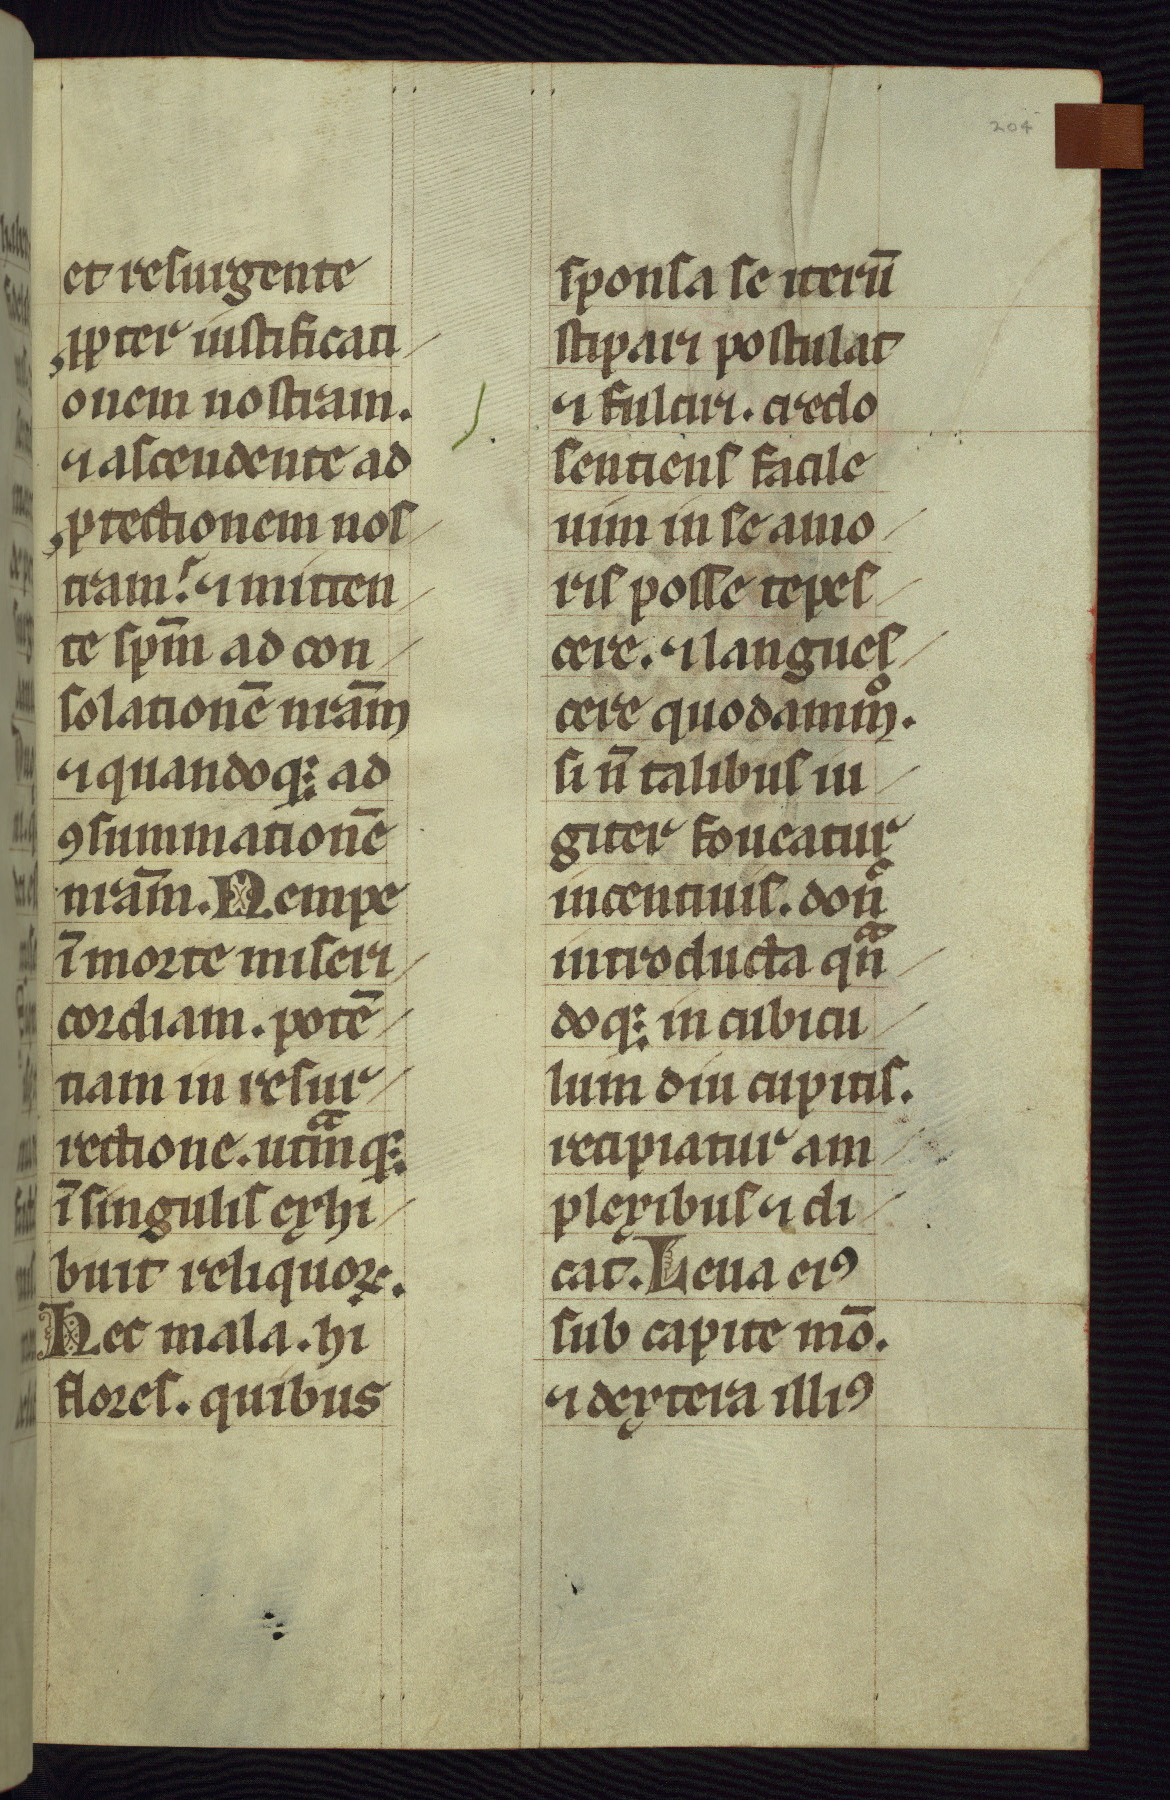 204
et resurgente
ꝓpter iustificati
onem nostram.
⁊ ascendente ad
ꝓtectionem nos
tram! ⁊ mitten
te spm̄ ad con
solationē nr̄am
⁊ quandoqꝫ ad
ꝯsummationē
nr̄am. Nempe
ī morte miseri
cordiam. potē
tiam in resur
rectione. utmᵃqꝫ
ī singulis exhi
buit reliquoꝝ.
Hec mala. hi
flores. quibus
sponsa se iterū
stipari postulat
⁊ fulciri. credo
sentiens facile
uim in se amo
ris posse tepes
cere. ⁊ langues
cere quodammͦ.
si n̄ talibus iu
giter foueatur
incentiuis. donͨ
introducta qnᵃ
doqꝫ in cubicu
lum diu cupitis.
recipiatur am
plexibus ⁊ di
cat. Leua eiꝰ
sub capite mō.
⁊ dextera illiꝰ